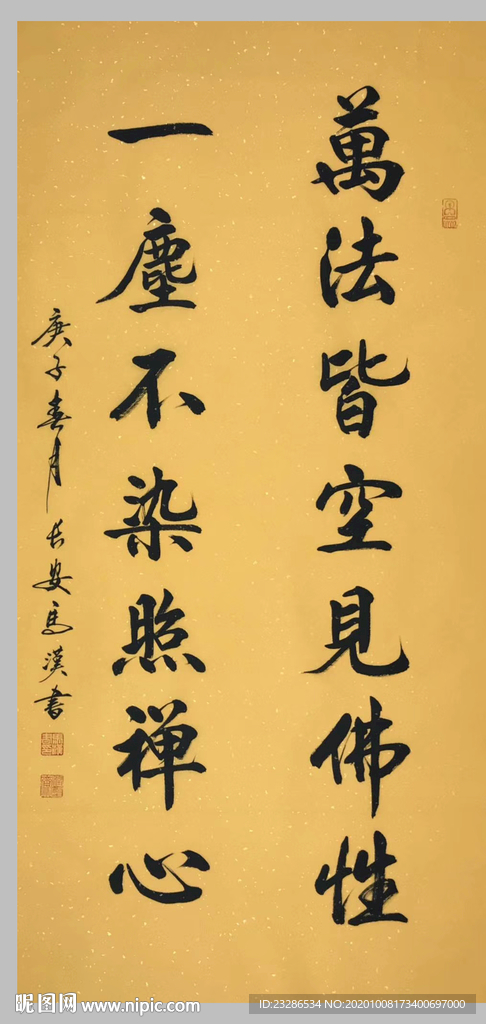 萬法皆空見佛性
一塵不染照禅心
庚子春月長安馬漢書
昵图网 www.nipic.com
ID:23286534 NO:20201008173400697000